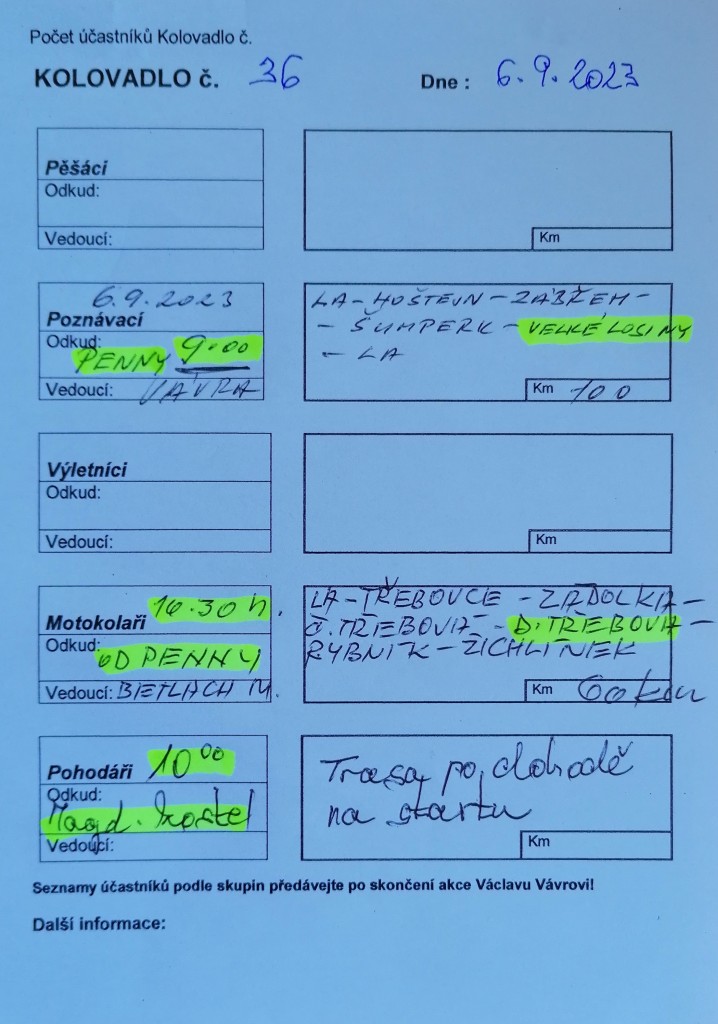 Počet účastníků Kolovadlo č.
KOLOVADLO č. 36 Dne : 6.9.2023
Pěšáci
Odkud:
Vedoucí:
Km
6.9.2023
Poznávací
Odkud: PENNY 9.00
Vedoucí: VÁVRA
LA-HOŠTEJN-ZÁBŘEH-
- ŠUMPERK-VELKÉ LOSINY
- LA
Km 100
Výletníci
Odkud:
Vedoucí:
Km
Motokolaři 16.30 h.
Odkud: OD PENNY
Vedoucí: BETLACH M.
LA-TŘEBOVICE-ZÁDOLKA-
Č.TŘEBOVÁ-D.TŘEBOVÁ-
RYBNÍK-
Km 60 km
Pohodáři 10 00
Odkud:
Magd. kostel
Vedoucí:
Trasa po dohodě
na startu
Km
Seznamy účastníků podle skupin předávejte po skončení akce Václavu Vávrovi!
Další informace: